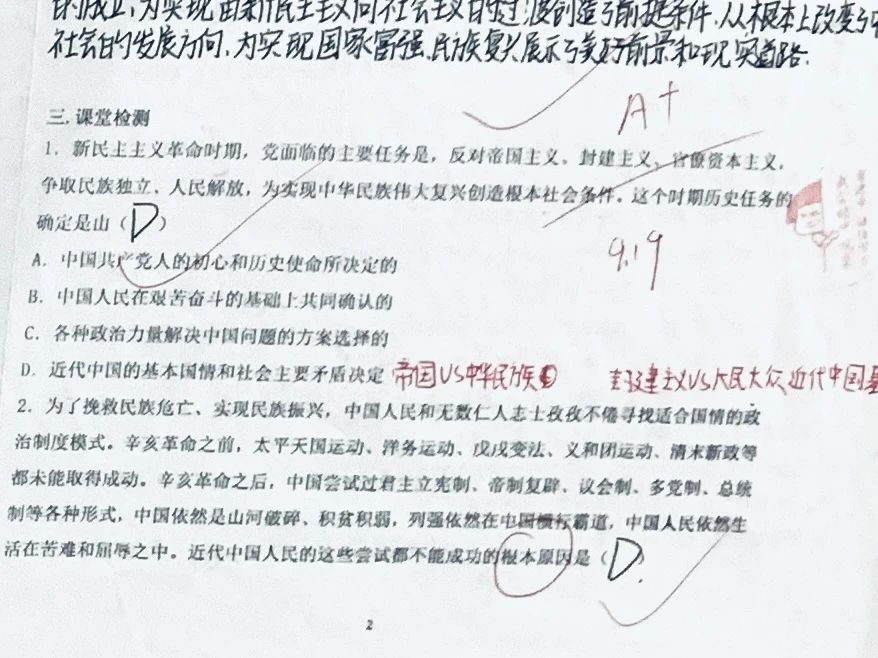 的成立,为实现由新民主主义向社会主义的过渡创造了前提条件,从根本上改变了中
社会的发展方向,为实现国家富强、民族复兴展示了美好前景和现实道路.
三.课堂检测
A+
1．新民主主义革命时期，党面临的主要任务是，反对帝国主义、封建主义、官僚资本主义，
争取民族独立、人民解放，为实现中华民族伟大复兴创造根本社会条件。这个时期历史任务的
确定是山（D）
9.19
A．中国共产党人的初心和历史使命所决定的
B．中国人民在艰苦奋斗的基础上共同确认的
C．各种政治力量解决中国问题的方案选择的
D．近代中国的基本国情和社会主要矛盾决定 帝国VS中华民族① 封建主义VS人民大众,近代中国最
2．为了挽救民族危亡、实现民族振兴，中国人民和无数仁人志士孜孜不倦寻找适合国情的政
治制度模式。辛亥革命之前，太平天国运动、洋务运动、戊戌变法、义和团运动、清末新政等
都未能取得成动。辛亥革命之后，中国尝试过君主立宪制、帝制复辟、议会制、多党制、总统
制等各种形式，中国依然是山河破碎、积贫积弱，列强依然在中国横行霸道，中国人民依然生
活在苦难和屈辱之中。近代中国人民的这些尝试都不能成功的根本原因是（D）
2